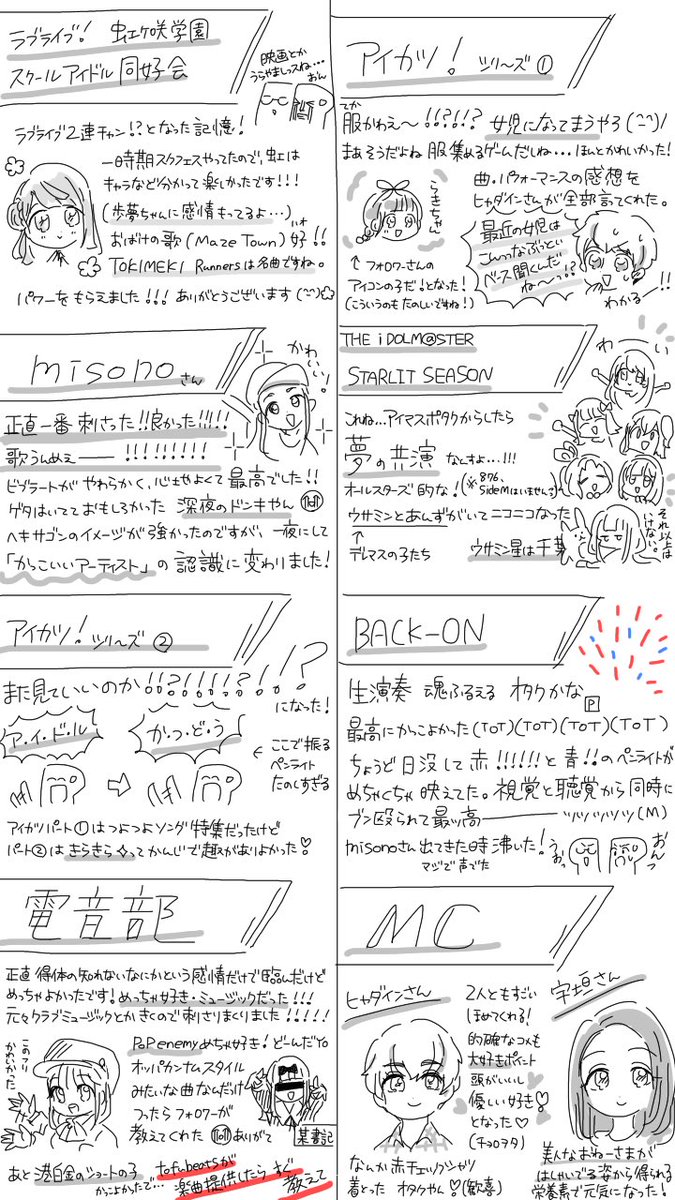 ラブライブ! 虹ヶ咲学園
スクールアイドル同好会
映画とか
うらやましっスね…
おん
ラブライブ2連チャン!?となった記憶!
一時期スクフェスやってたので、虹は
キャラなど分かって楽しかったです!!!
(歩夢ちゃんに感情もってるよ…)
おばけの歌(Maze Town)好!!
TOKIMEKI Runnersは名曲ですね。
パワーをもらえました!!!ありがとうございます
アイカツ!シリーズ①
てか
服かわえ〜!!?!!? 女児になってまうやろ
まあそうだよね 服集めるゲームだしね…ほんとかわいかった!
曲・パフォーマンスの感想を
ヒャダインさんが全部言ってくれた。
← フォロワーさんの
アイコンの子だ!となった!
(こういうのもたのしいですね!)
最近の女児は
こんっなぶっとい
ベース聞くんだ
ね〜〜!?
わかる!!
misonoさん
かわいい!
正直一番刺さった!!良かった!!!!!
歌うんめぇ——!!!!!!!!!
ビブラートがやわらかく、心地よくて最高でした!!
ゲタはいてておもしろかった 深夜のドンキやん
ヘキサゴンのイメージが強かったのですが、一夜にして
「かっこいいアーティスト」の認識に変わりました!
THE iDOLM@STER
STARLIT SEASON
わーい
これね…アイマスポタクからしたら
夢の共演なんすよ…!!!
オールスターズ的な!(※876、
SideMはいません)
ウサミンとあんずがいてニコニコなった
↑
デレマスの子たち
ウサミン星は千葉
それ以上は
いけない。
アイカツ!シリーズ②
また見ていいのか!!?!!!?!.!?
になった!
ア・イ・ド・ル
か・つ・ど・う
← ここで振る
ペンライト
たのしすぎる
アイカツパート①はつよつよソング特集だったけど
パート②はきらきら✧ってかんじで趣がありよかった♡
BACK-ON
生演奏 魂ふるえる オタクかな
P
最高にかっこよかった(TOT)(TOT)(TOT)(TOT)
ちょうど日没して赤!!!!!!と青!!のペンライトが
めちゃくちゃ映えてた。視覚と聴覚から同時に
ブン殴られて最ッ高——ッッッッッッ(M)
misonoさん出てきた時沸いた!
マジで声でた
うおっ
おんっ
電音部
正直得体の知れないなにかという感情だけで臨んだけど
めっちゃよかったです!めっちゃ好き・ミュージックだった!!!
元々クラブミュージックとかきくので刺さりまくりました!!!!!
PoP enemyめちゃ好き!どーんだYo
オッパカンナムスタイル
みたいな曲なんだけど
つったらフォロワーが
教えてくれた ありがて
某書記
あと港白金のショートの子
かっこよかたで…
tofubeatsが
楽曲提供したらすぐ
教えて
MC
ヒャダインさん
2人ともすごい
ほめてくれる!
的確なコメも
大好きポイント
頭がいいし
優しい好き!
となった♡
(チョロヲタ)
なんか赤チェックシャツ
着とった オタクやん♡(敬意)
宇垣さん
美人なおねーさまが
はしゃいでる姿から得られる
栄養素で元気になった!